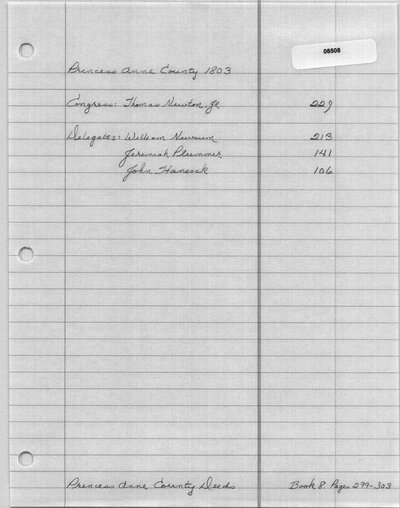 08508
Princess Anne County 1803
Congress: Thomas Newton Jr 229
Delegates: William Newsum 213
Jeremiah Plummer 141
John Hancock 106
Princess Anne County Deeds Book 8 Pages 299-303